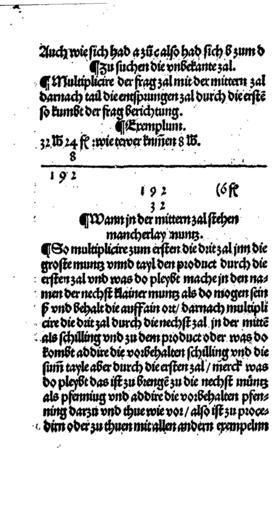 Auch wie sich had a zů c also had sich b zum d
¶ Zu suchen die vnbekante zal.
¶ Multiplicire der frag zal mit der mittern zal
darnach tail die entsprungen zal durch die erstē
so kumbt der frag berichtung.
¶ Exemplum.
32 lb 24 fl : wie tewer 8 lb.
8
192
192 (6 fl
32
¶ Wann jn der mittern zal stehen
mancherlay muntz.
¶ So multiplicire zum ersten die drit zal jnn die
groste muntz vnnd tayl den product durch die
ersten zal vnd was do pleybt mache jn den na-
men der nechst klainer muntz als do mogen sein
ß vnd behalt die auff ain ort / darnach multipli
cire die drit zal durch die nechst zal jn der mittē
als schilling vnd zu dem product oder was do
kombt addire die vorbehalten schilling vnd die
sum̄ tayle aber durch die ersten zal / merck was
do pleybt das ist zu brengē zu die nechst müntz
als pfenniug vnd addire die vorbehalten pfen-
ning darzu vnd thue wie vor / also ist zu proce-
dirn oder zu thuen mit allen andern exempelnn